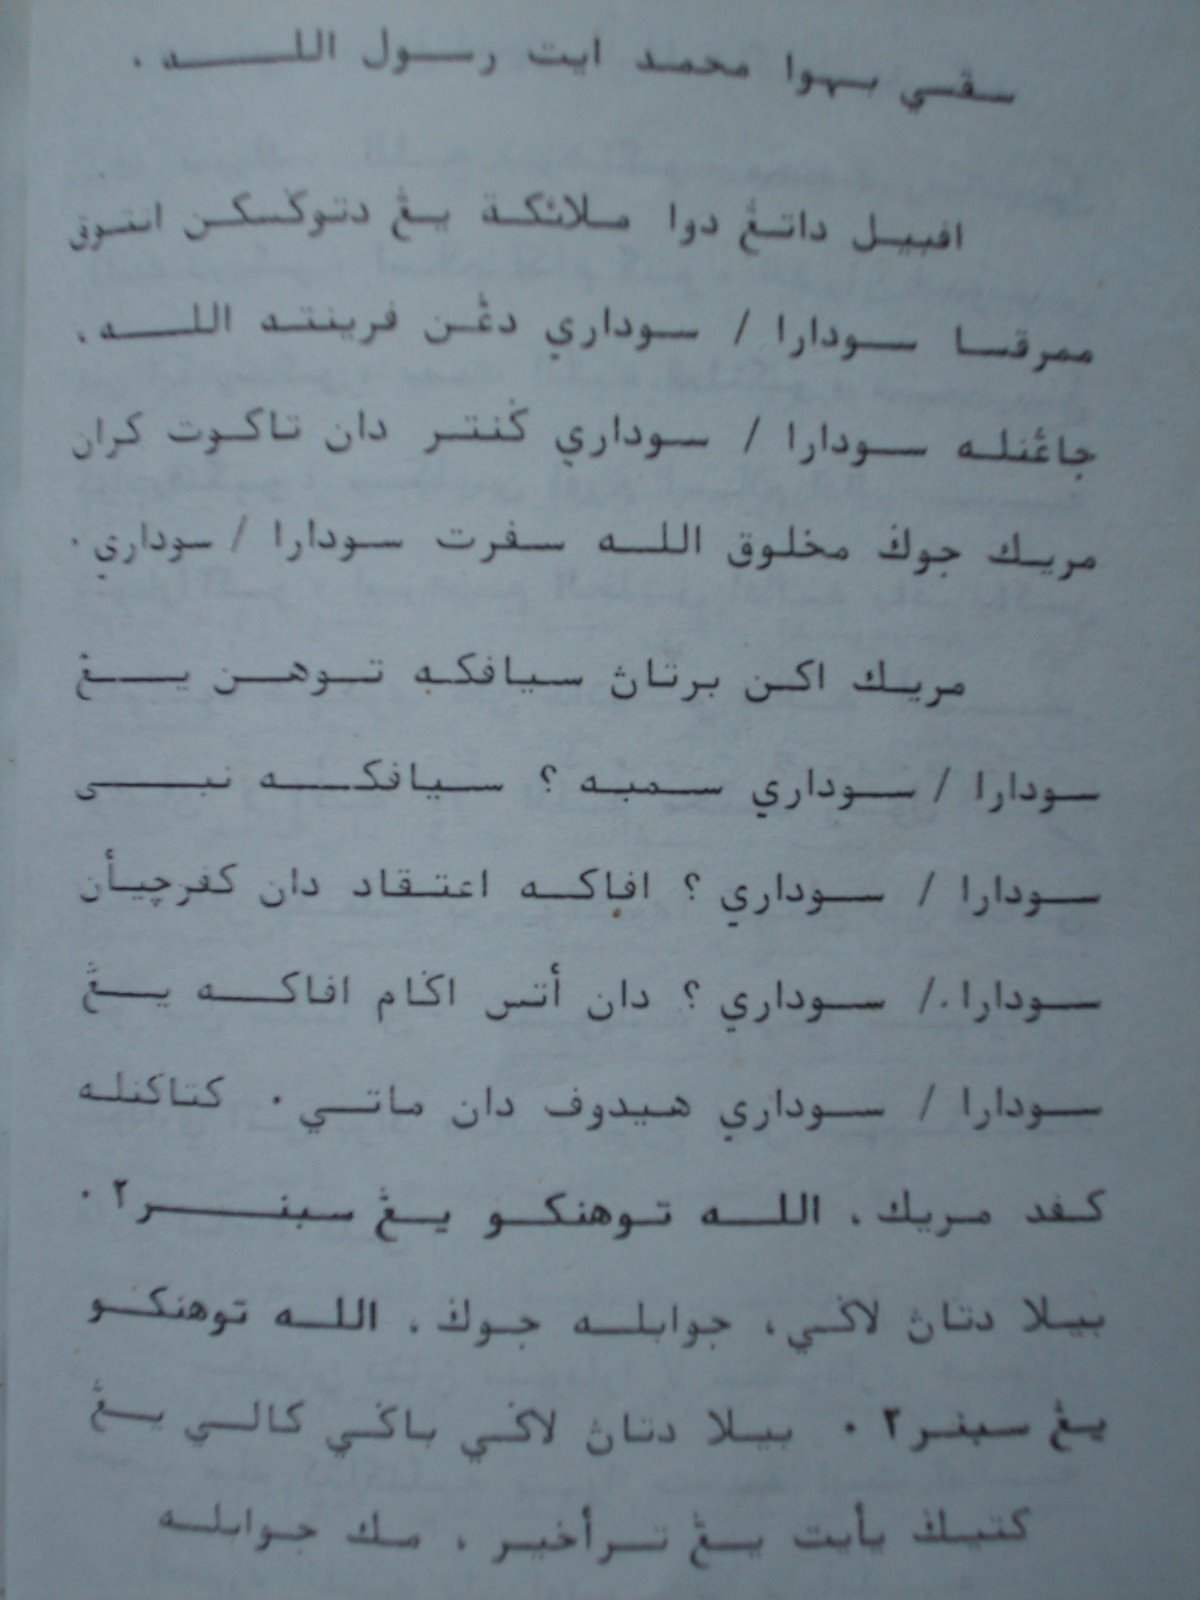 سقسي بهوا محمد ايت رسول الله .
افبيل داتڠ دوا ملائكة يڠ دتوݢسكن انتوق
ممرقسا سودارا / سوداري دڠن فرينته الله ،
جاڠنله سودارا / سوداري ݢنتر دان تاكوت كران
مريك جوݢ مخلوق الله سفرت سودارا / سوداري .
مريك اكن برتاڽ سيافكه توهن يڠ
سودارا / سوداري سمبه ؟ سيافكه نبي
سودارا / سوداري ؟ افاكه اعتقاد دان كفرچيأن
سودارا / سوداري ؟ دان أتس اݢام افاكه يڠ
سودارا / سوداري هيدوف دان ماتي . كتاكنله
كفد مريك ، الله توهنكو يڠ سبنر٢ .
بيلا دتاڽ لاݢي ، جوابله جوݢ ، الله توهنكو
يڠ سبنر٢ . بيلا دتاڽ لاݢي باݢي كالي يڠ
كتيݢ يأيت يڠ ترأخير ، مك جوابله